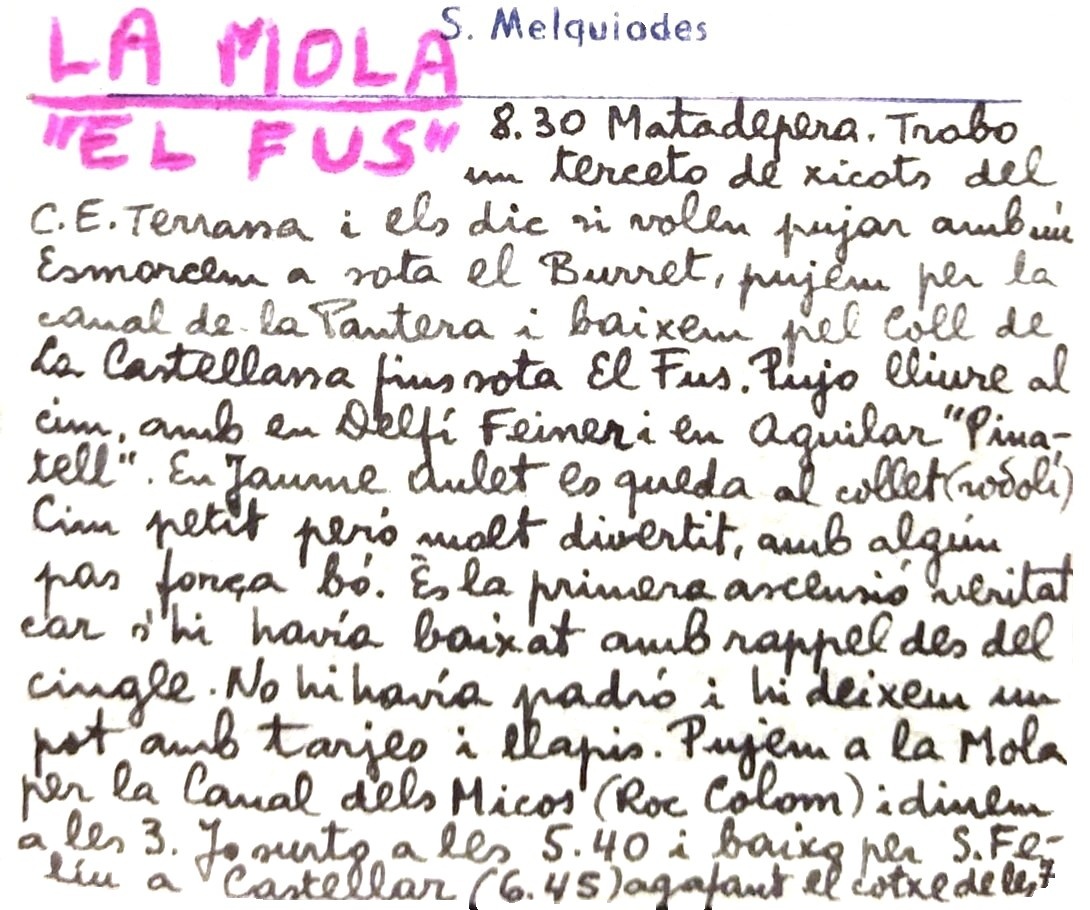 S. Melquiodes
LA MOLA
"EL FUS"
8.30 Matadepera. Trobo
un terceto de xicots del
C.E. Terrassa i els dic si volen pujar amb mi
Esmorcem a sota el Burret, pujem per la
canal de la Pantera i baixem pel Coll de
La Castellassa fins sota El Fus. Pujo lliure al
cim, amb en Delfí Feiner i en Aguilar "Pina-
tell". En Jaume Aulet es queda al collet (ròdolí)
Cim petit però molt divertit, amb algún
pas força bó. Ès la primera ascensió veritat
car s'hi havía baixat amb rappel des del
cingle. No hi havía padró i hi deixem un
pot amb tarjes i llapis. Pujem a la Mola
per la Canal dels Micos (Roc Colom) i dinem
a les 3. Jo surtg a les 5.40 i baixg per S. Fe-
líu a Castellar (6.45) agafant el cotxe de les 7